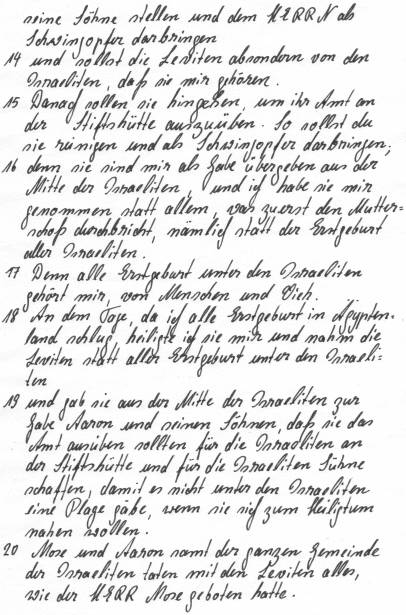 seine Söhne stellen und dem HERRN als
Schwingopfer darbringen
14 und sollst die Leviten absondern von den
Israeliten, daß sie mir gehören.
15 Danach sollen sie hingehen, um ihr Amt an
der Stiftshütte auszuüben. So sollst du
sie reinigen und als Schwingopfer darbringen;
16 denn sie sind mir als Gabe übergeben aus der
Mitte der Israeliten, und ich habe sie mir
genommen statt allem, was zuerst den Mutter=
schoß durchbricht, nämlich statt der Erstgeburt
aller Israeliten.
17 Denn alle Erstgeburt unter den Israeliten
gehört mir, von Menschen und Vieh.
18 An dem Tage, da ich alle Erstgeburt in Ägypten=
land schlug, heiligte ich sie mir und nahm die
Leviten statt aller Erstgeburt unter den Israeli=
ten
19 und gab sie aus der Mitte der Israeliten zur
Gabe Aaron und seinen Söhnen, daß sie das
Amt ausüben sollten für die Israeliten an
der Stiftshütte und für die Israeliten Sühne
schaffen, damit es nicht unter den Israeliten
eine Plage gäbe, wenn sie sich zum Heiligtum
nahen wollen.
20 Mose und Aaron samt der ganzen Gemeinde
der Israeliten taten mit den Leviten alles,
wie der HERR Mose geboten hatte.